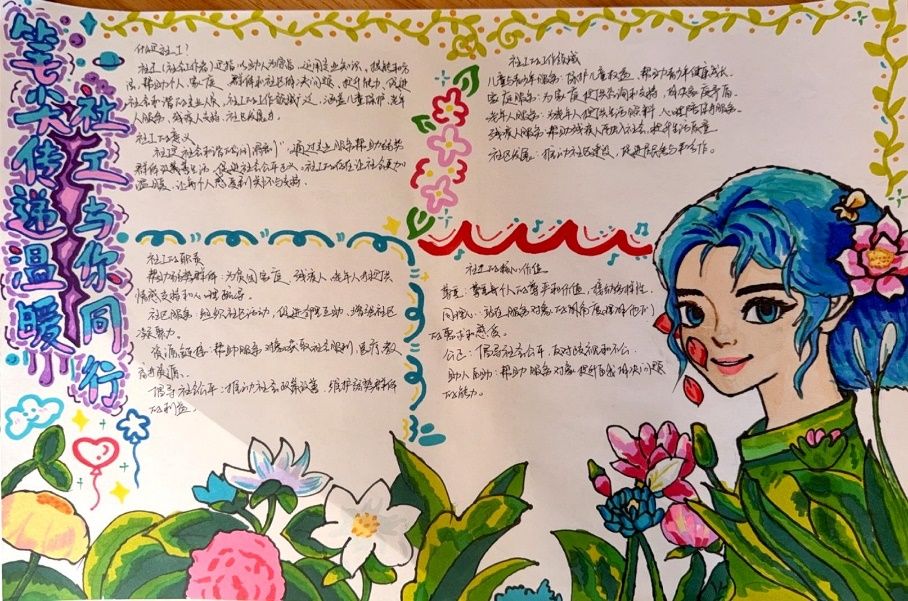 笔尖传递温暖
社工与你同行
什么是社工?
社工(社会工作者)是指以助人为宗旨,运用专业知识、技能和方
法,帮助个人、家庭、群体和社区解决问题、提升能力、促进
社会和谐的专业人员。社工的工作领域广泛,涵盖儿童保护、老年
人服务、残疾人支持、社区发展等。
社工的意义
社工是社会和谐的"润滑剂",通过专业服务帮助弱势
群体改善生活,促进社会公平正义。社工的存在让社会更加
温暖,让每个人感受到关怀与支持。
社工的工作领域
儿童与青少年服务:保护儿童权益,帮助青少年健康成长。
家庭服务:为家庭提供咨询和支持,解决家庭矛盾。
老年人服务:为老年人提供生活照料、心理陪伴等服务。
残疾人服务:帮助残疾人融入社会,提升生活质量。
社区发展:推动社区建设,促进居民参与和合作。
社工的职责
帮助弱势群体:为贫困家庭、残疾人、老年人等提供
情感支持和心理疏导。
社区服务:组织社区活动,促进邻里互助,增强社区
凝聚力。
资源链接:帮助服务对象获取社会福利、医疗、教
育等资源。
倡导社会公平:推动社会政策改善,维护弱势群体
的利益。
社工的核心价值
尊重:尊重每个人的尊严和价值,接纳多样性。
同理心:站在服务对象的角度理解他们
的需求和感受。
公正:倡导社会公平,反对歧视和不公。
助人自助:帮助服务对象提升自我解决问题
的能力。